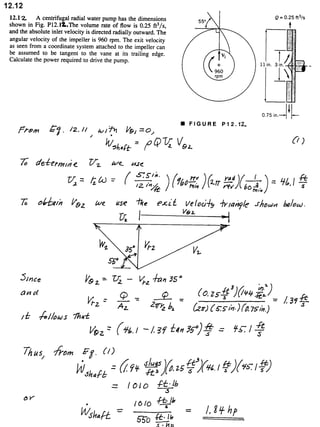 12.12
12.12 A centrifugal radial water pump has the dimensions
shown in Fig. P12.12. The volume rate of flow is 0.25 ft³/s,
and the absolute inlet velocity is directed radially outward. The
angular velocity of the impeller is 960 rpm. The exit velocity
as seen from a coordinate system attached to the impeller can
be assumed to be tangent to the vane at its trailing edge.
Calculate the power required to drive the pump.
55°
Q = 0.25 ft³/s
V₁
11 in.
3 in.
960
rpm
0.75 in.
■ FIGURE P12.12
From Eq. 12.11, with Vθ1 = 0,
Ẇshaft = ρQU₂Vθ2 (1)
To determine U₂ we use
U₂ = r₂ω = (5.5 in. / 12 in./ft)(960 rev/min)(2π rad/rev)(1/60 s/min) = 46.1 ft/s
To obtain Vθ2 we use the exit velocity triangle shown below.
U₂
Vθ2
W₂
35°
Vr2
V₂
55°
Since Vθ2 = U₂ - Vr2 tan 35°
and
Vr2 = Q/A₂ = Q/2πr₂b₂ = (0.25 ft³/s)(144 in²/ft²) / (2π)(5.5 in.)(0.75 in.) = 1.39 ft/s
it follows that
Vθ2 = (46.1 - 1.39 tan 35°) ft/s = 45.1 ft/s
Thus, from Eq. (1)
Ẇshaft = (1.94 slugs/ft³)(0.25 ft³/s)(46.1 ft/s)(45.1 ft/s)
= 1010 ft·lb/s
or
Ẇshaft = 1010 ft·lb/s / 550 ft·lb/s·hp = 1.84 hp